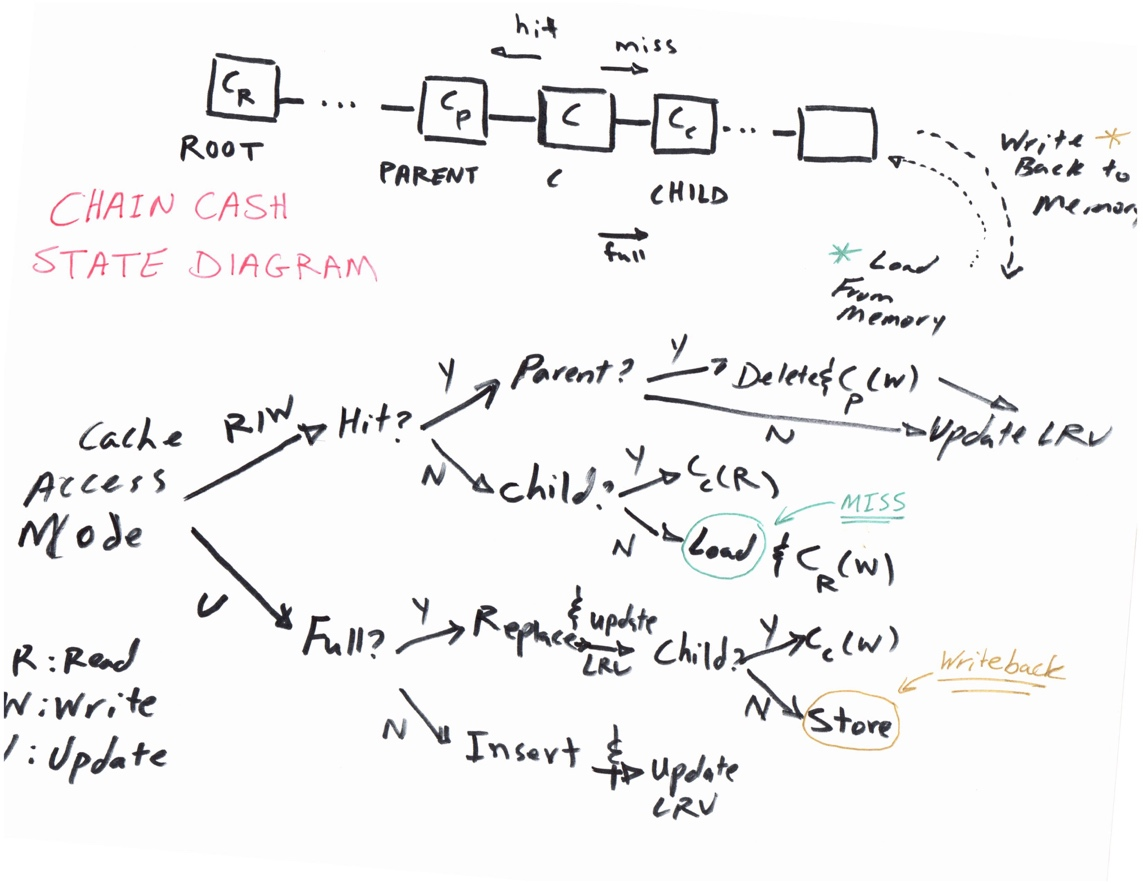 hit
miss
C_R
...
C_P
C
C_c
...
ROOT
PARENT
C
CHILD
full
Write *
Back to
Memory
* Load
From
Memory
CHAIN CASH
STATE DIAGRAM
Cache
Access
Mode
R/W
Hit?
Y
Parent?
Y
Delete & C_P(W)
N
Update LRU
N
Child?
Y
C_c(R)
N
Load & C_R(W)
MISS
U
Full?
Y
Replace & update
LRU
Child?
Y
C_c(W)
N
Store
Writeback
N
Insert & Update
LRU
R: Read
W: Write
U: Update